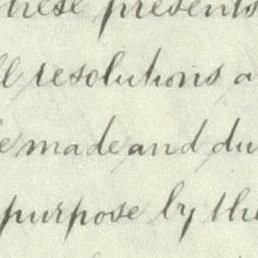 these presents
ll resolutions a
e made and du
purpose by the